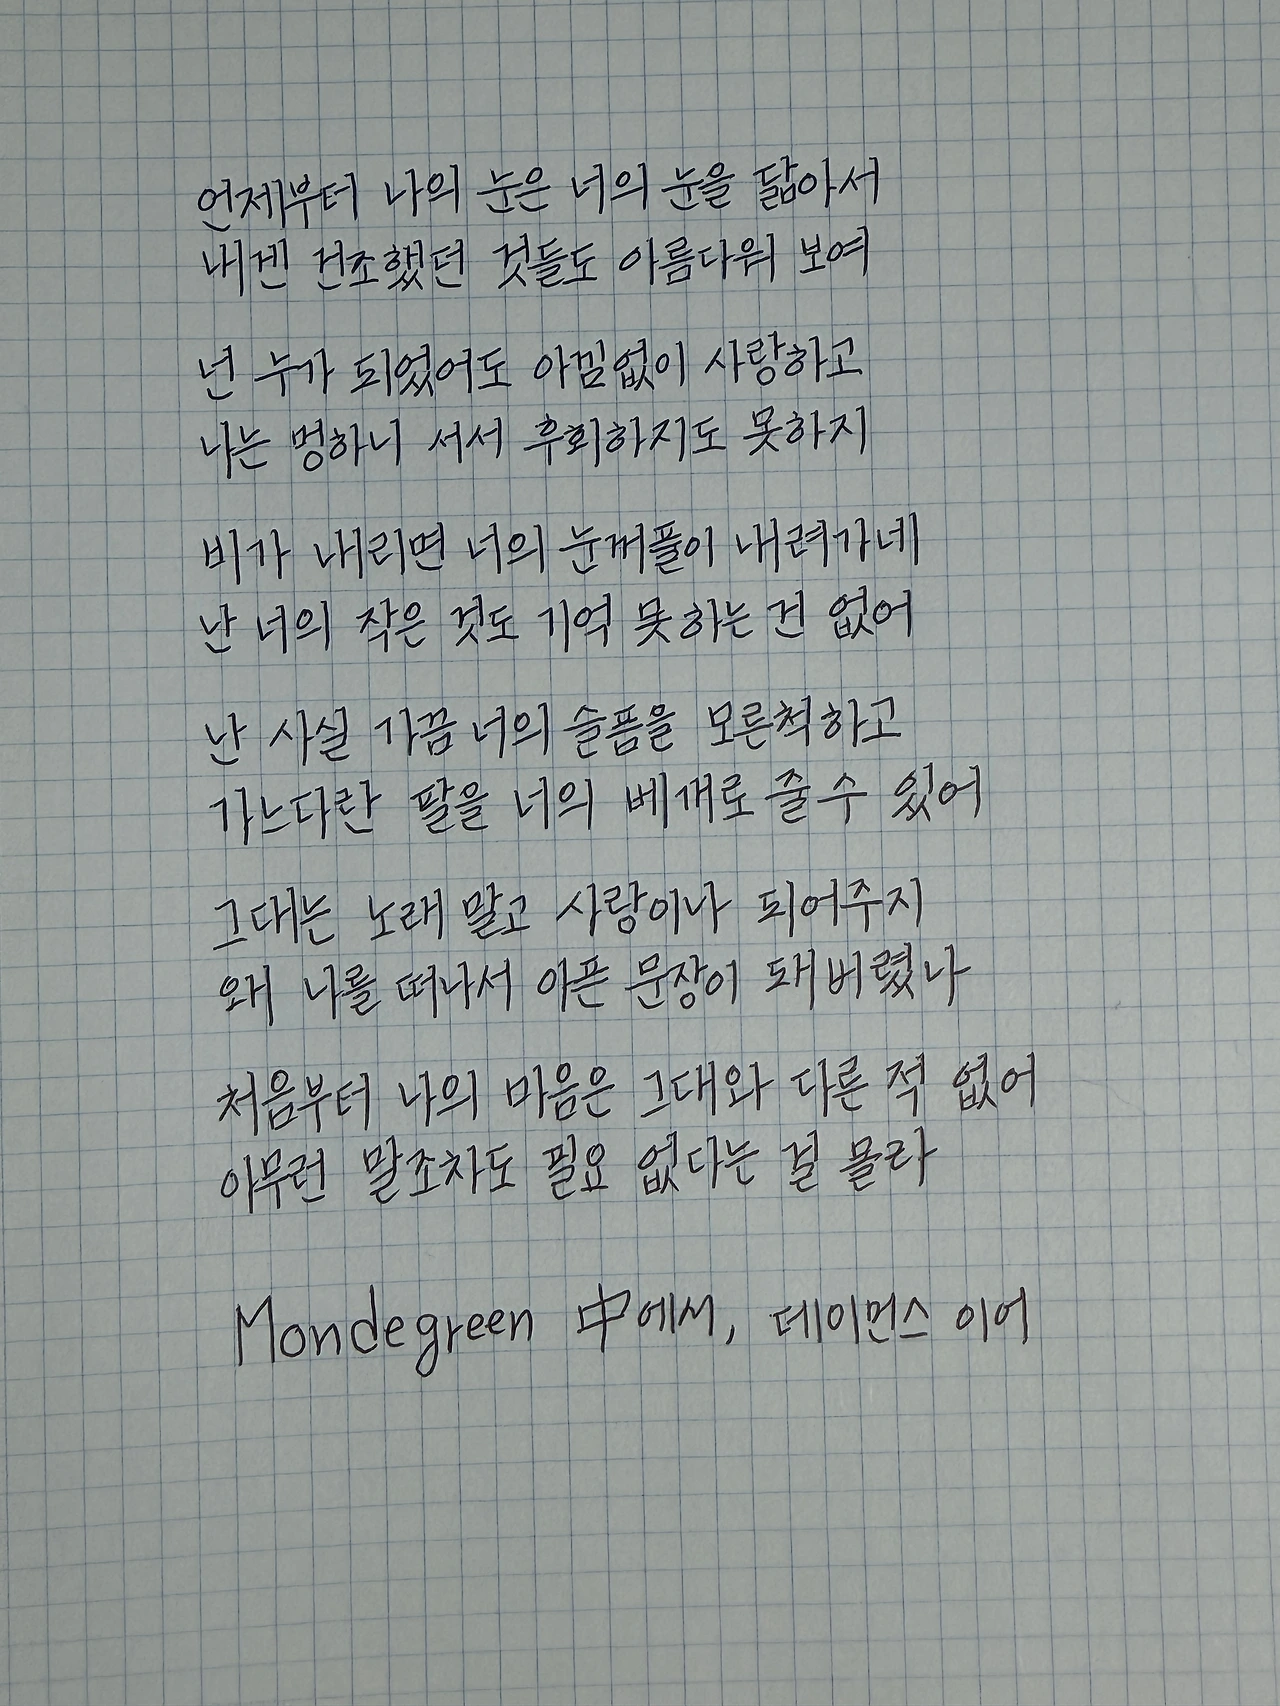 언제부터 나의 눈은 너의 눈을 닮아서
내겐 건조했던 것들도 아름다워 보여
넌 누가 되었어도 아낌없이 사랑하고
나는 멍하니 서서 후회하지도 못하지
비가 내리면 너의 눈꺼풀이 내려가네
난 너의 작은 것도 기억 못하는 건 없어
난 사실 가끔 너의 슬픔을 모른척하고
가느다란 팔을 너의 베개로 줄 수 있어
그대는 노래 말고 사랑이나 되어주지
왜 나를 떠나서 아픈 문장이 돼버렸나
처음부터 나의 마음은 그대와 다른 적 없어
아무런 말조차도 필요 없다는 걸 몰라
Mondegreen 中에서, 데이먼스 이어